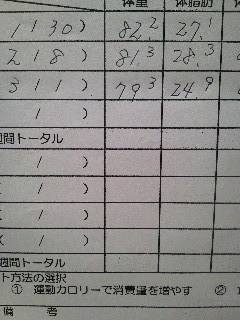 体重 体脂肪
1 / 30 ) 82.2 27.1
2 / 8 ) 81.3 28.3
3 / 1 ) 79.3 24.9
/ )
週間トータル
/ )
( / )
( / )
( / )
週間トータル
ト方法の選択
① 運動カロリーで消費量を増やす ②
備 考